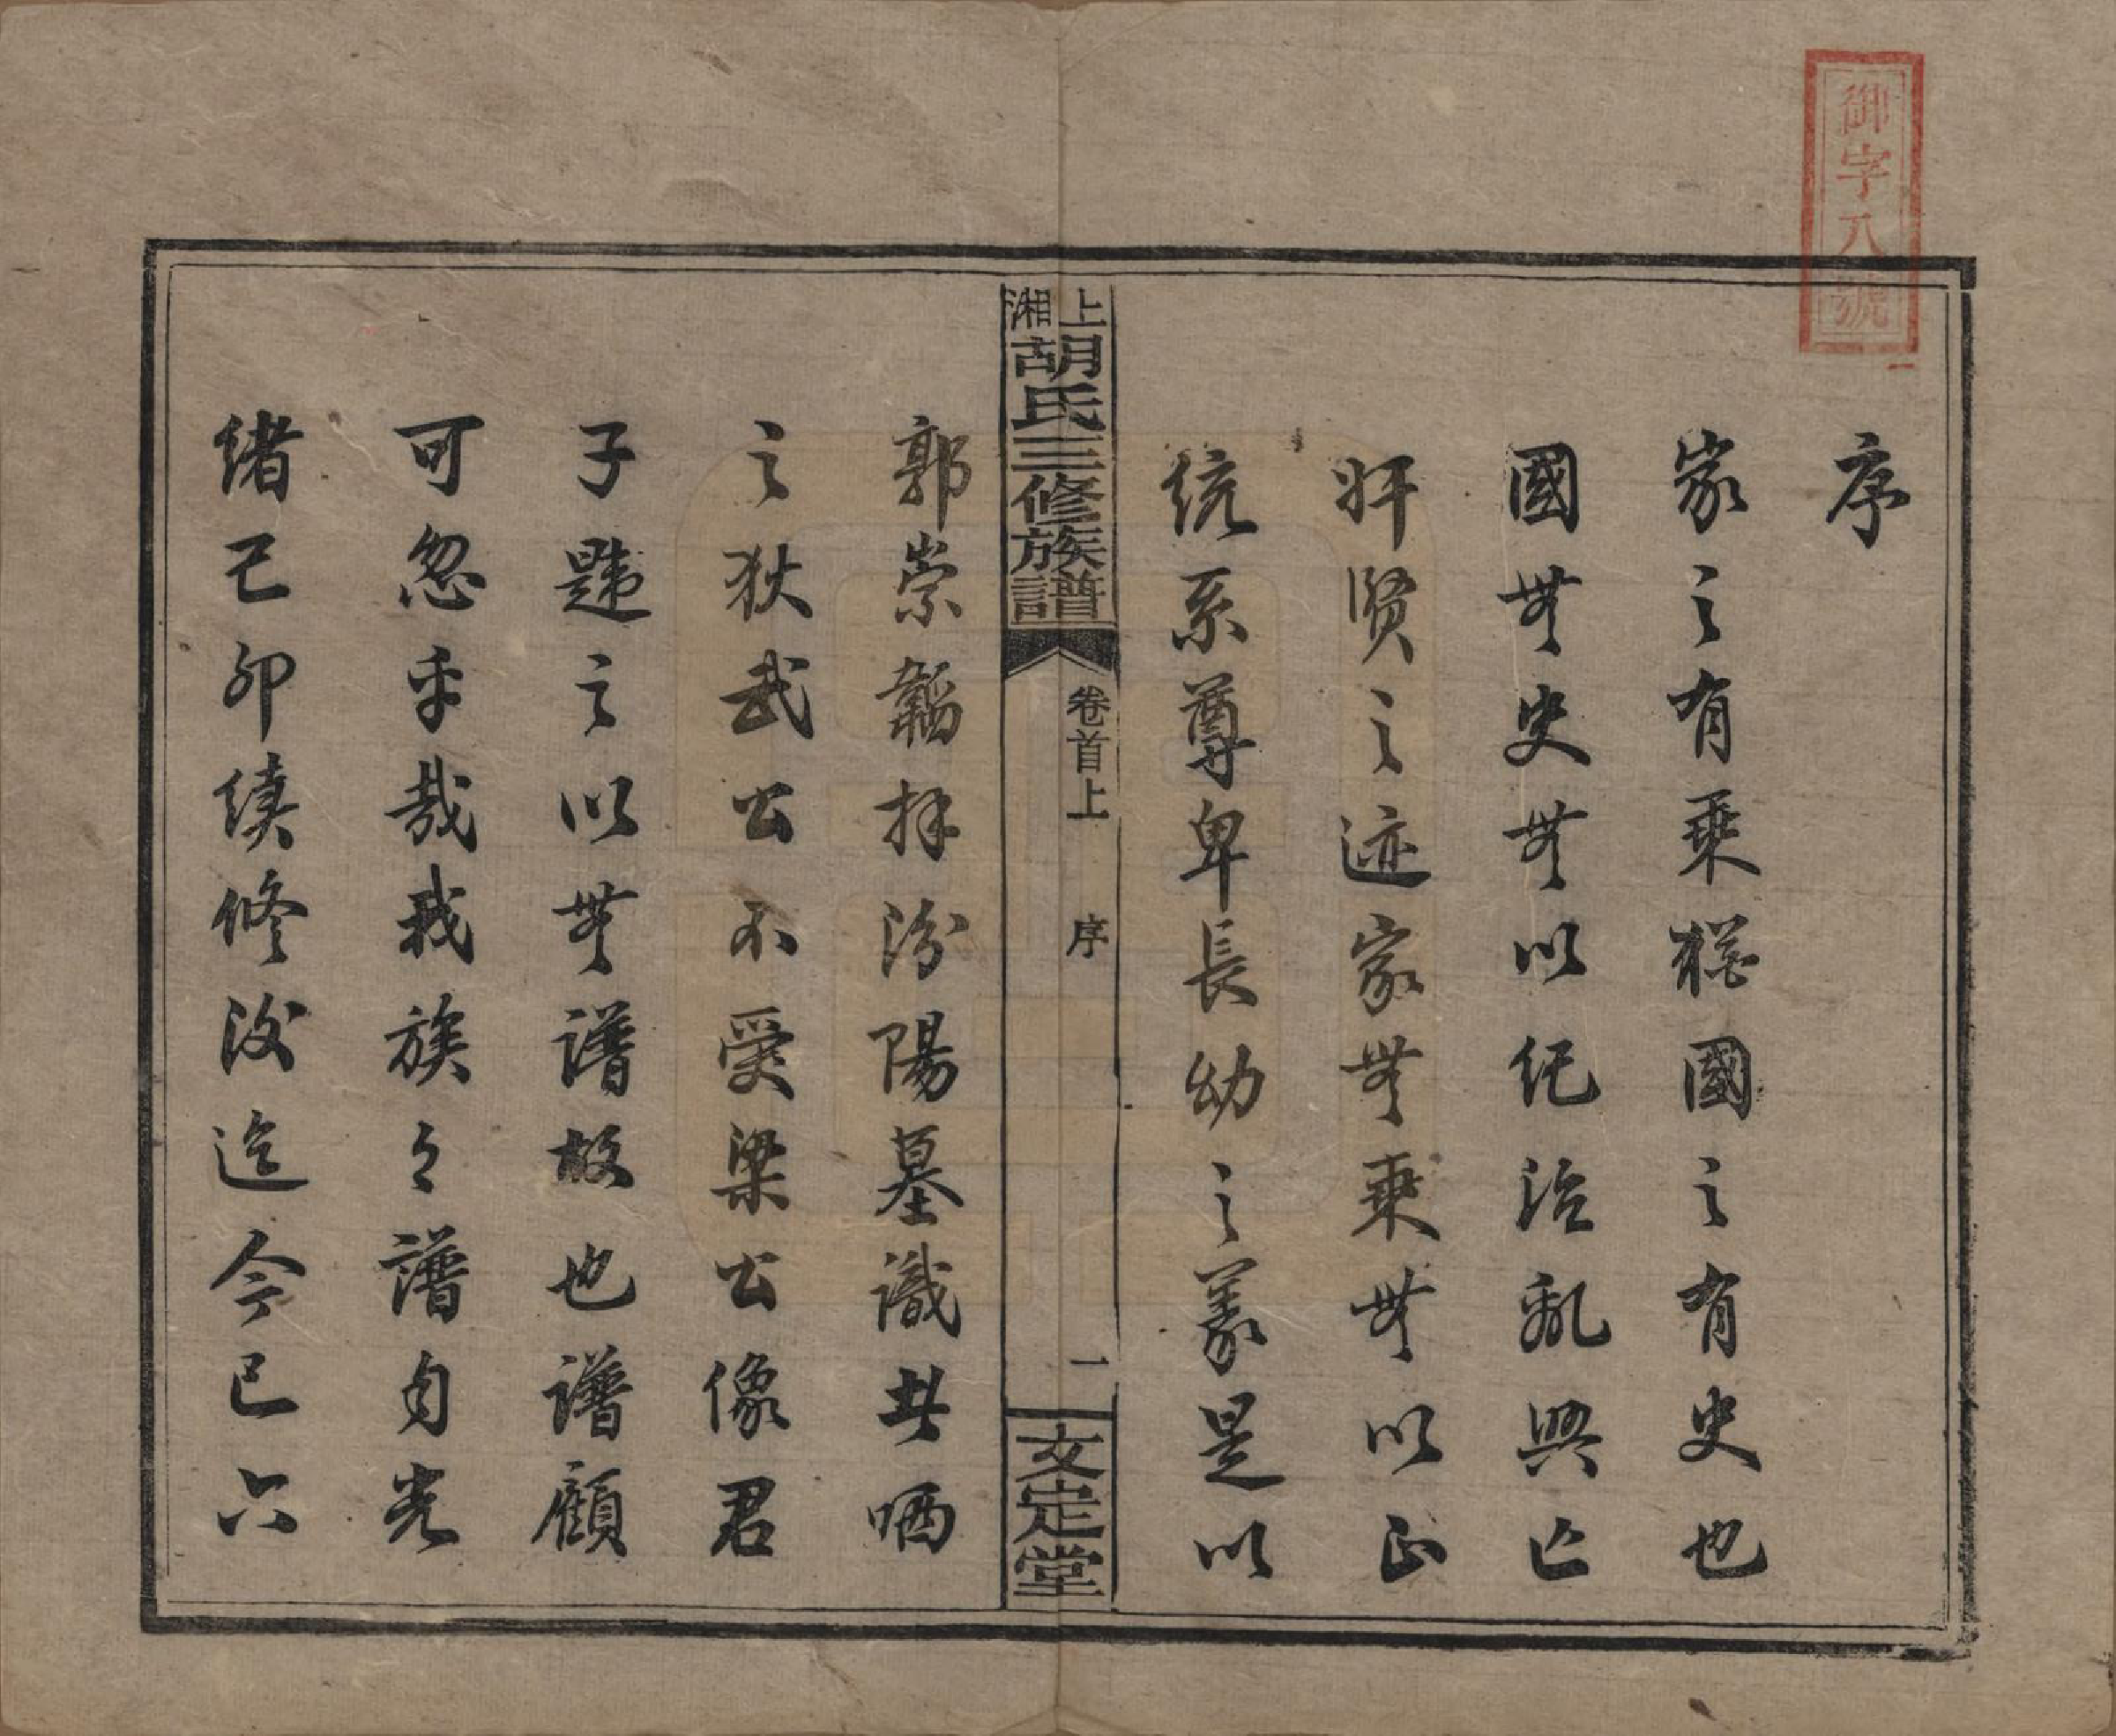 御字八號
序
家之有乘猶國之有史也
國無史無以紀治亂興亡
奸賢之迹家無乘無以正
統系尊卑長幼之義是以
上湘胡氏三修族譜
卷首上
序
一
文定堂
郭崇韜拜汾陽墓識共哂
之狄武公不受梁公像君
子韙之以無譜故也譜顧
可忽乎哉我族之譜自光
緒己卯續修後迄今已六